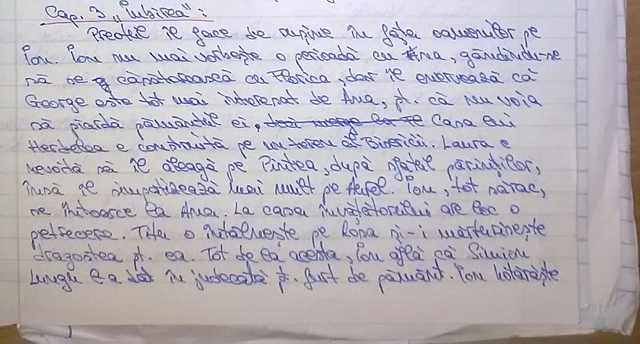 Cap. 3 „Iubirea”:
Preotul îl face de rușine în fața oamenilor pe
Ion. Ion nu mai vorbește o perioadă cu Ana, gândindu-se
să se căsătorească cu Florica, dar îl enervează că
George este tot mai interesat de Ana, pt. că nu voia
să piardă pământul ei, Casa lui
Herdelea e construită pe un teren al Bisericii. Laura e
nevoită să îl aleagă pe Pintea, după sfatul părinților,
însă îl simpatizează mai mult pe Aurel. Ion, tot sărac,
se întoarce la Ana. La casa învățătorului are loc o
petrecere. Titu o întâlnește pe Roza și-i mărturisește
dragostea pt. ea. Tot de la acesta, Ion află că Simion
Lungu l-a dat în judecată pt. furt de pământ. Ion hotărăște